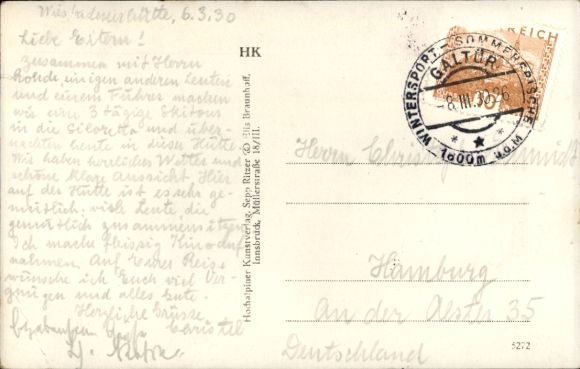 Wiesbadenerhütte, 6.3.30
Liebe Eltern!
Zusammen mit Herrn
Rohde, einigen anderen Leuten
und einem Führer machen
wir eine 3 tägige Skitour
in die Silvretta und über-
nachten heute in dieser Hütte.
Wir haben herrliches Wetter und
schöne klare Aussicht. Hier
auf der Hütte ist es sehr ge-
mütlich; viele Leute, die
gemütlich zusammensitzen.
Ich mache fleissig Kinoauf-
nahmen. Auf Eurer Reise
wünsche ich Euch viel Ver-
gnügen und alles Gute.
Herzliche Grüsse
Christel
HK
Hochalpiner Kunstverlag, Sepp Ritzer & Elis Braunhoff,
Innsbruck, Müllerstraße 18/III.
REICH
WINTERSPORT-SOMMERFRISCHE
GALTÜR
-8.III.30
1600m
Herrn
Hamburg
An der Alster 35
Deutschland
5272